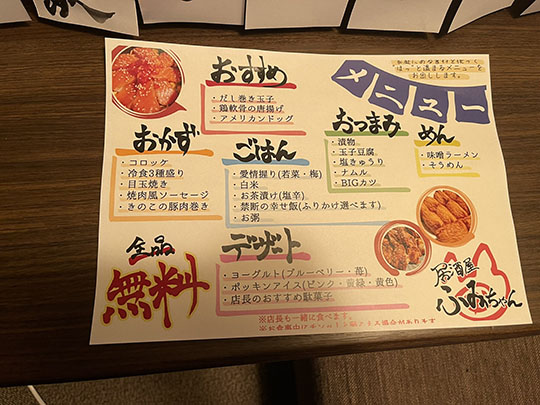 メニュー
おすすめ
・だし巻き玉子
・鶏軟骨の唐揚げ
・アメリカンドッグ
おかず
・コロッケ
・冷食3種盛り
・目玉焼き
・焼肉風ソーセージ
・きのこの豚肉巻き
ごはん
・愛情握り(若菜・梅)
・白米
・お茶漬け(塩辛)
・禁断の幸せ飯(ふりかけ選べます)
・お粥
おつまみ
・漬物
・玉子豆腐
・塩きゅうり
・ナムル
・BIGカツ
めん
・味噌ラーメン
・そうめん
デザート
・ヨーグルト(ブルーベリー・苺)
・ポッキンアイス(ピンク・黄緑・黄色)
・店長のおすすめ駄菓子
※店長も一緒に食べます。
全品
無料
居酒屋